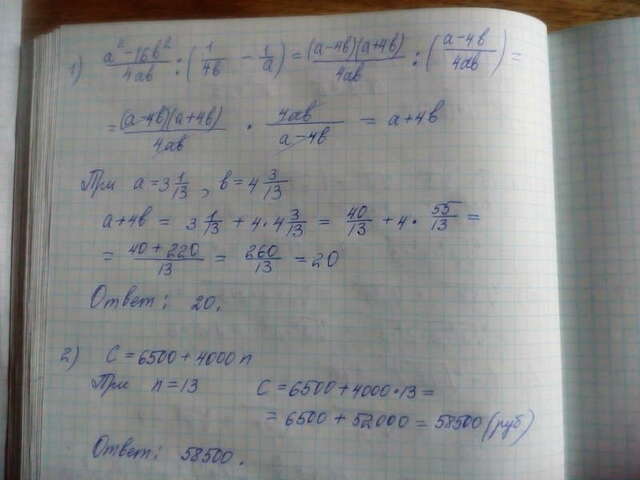 1) (a² - 16b²)/(4ab) : (1/(4b) - 1/a) = ((a-4b)(a+4b))/(4ab) : ((a-4b)/(4ab)) =
= ((a-4b)(a+4b))/(4ab) · (4ab)/(a-4b) = a+4b
При a = 3 1/13, b = 4 3/13
a+4b = 3 1/13 + 4·4 3/13 = 40/13 + 4·55/13 =
= (40+220)/13 = 260/13 = 20
Ответ: 20.
2) C = 6500 + 4000 n
При n = 13 C = 6500 + 4000·13 =
= 6500 + 52000 = 58500 (руб)
Ответ: 58500.